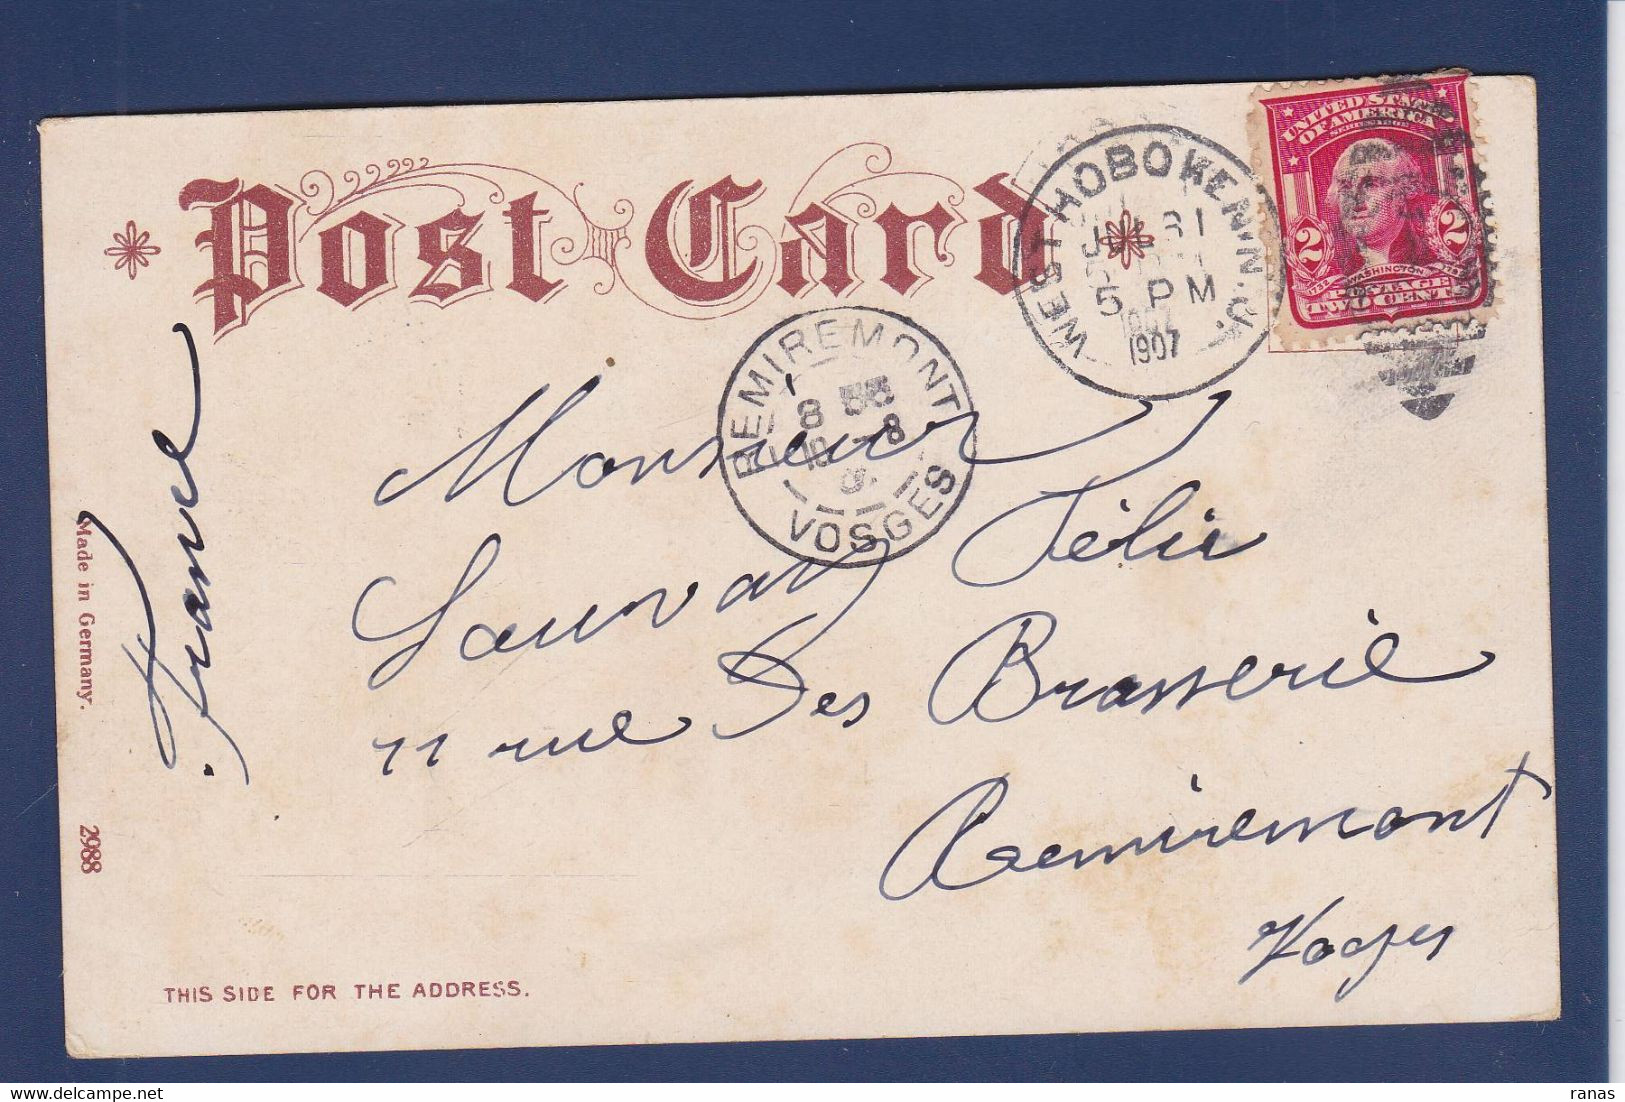 Post Card
WEST HOBOKEN, N.J.
JUL 31
5 PM
1907
UNITED STATES
OF AMERICA
SERIES 1902
2 2
1732 WASHINGTON 1799
POSTAGE
TWO CENTS
REMIREMONT
8
10 -8
VOSGES
Monsieur
Sauvay Félix
11 rue Des Brasserie
Remiremont
Vosges
France
Made in Germany.
2988
THIS SIDE FOR THE ADDRESS.
ranas